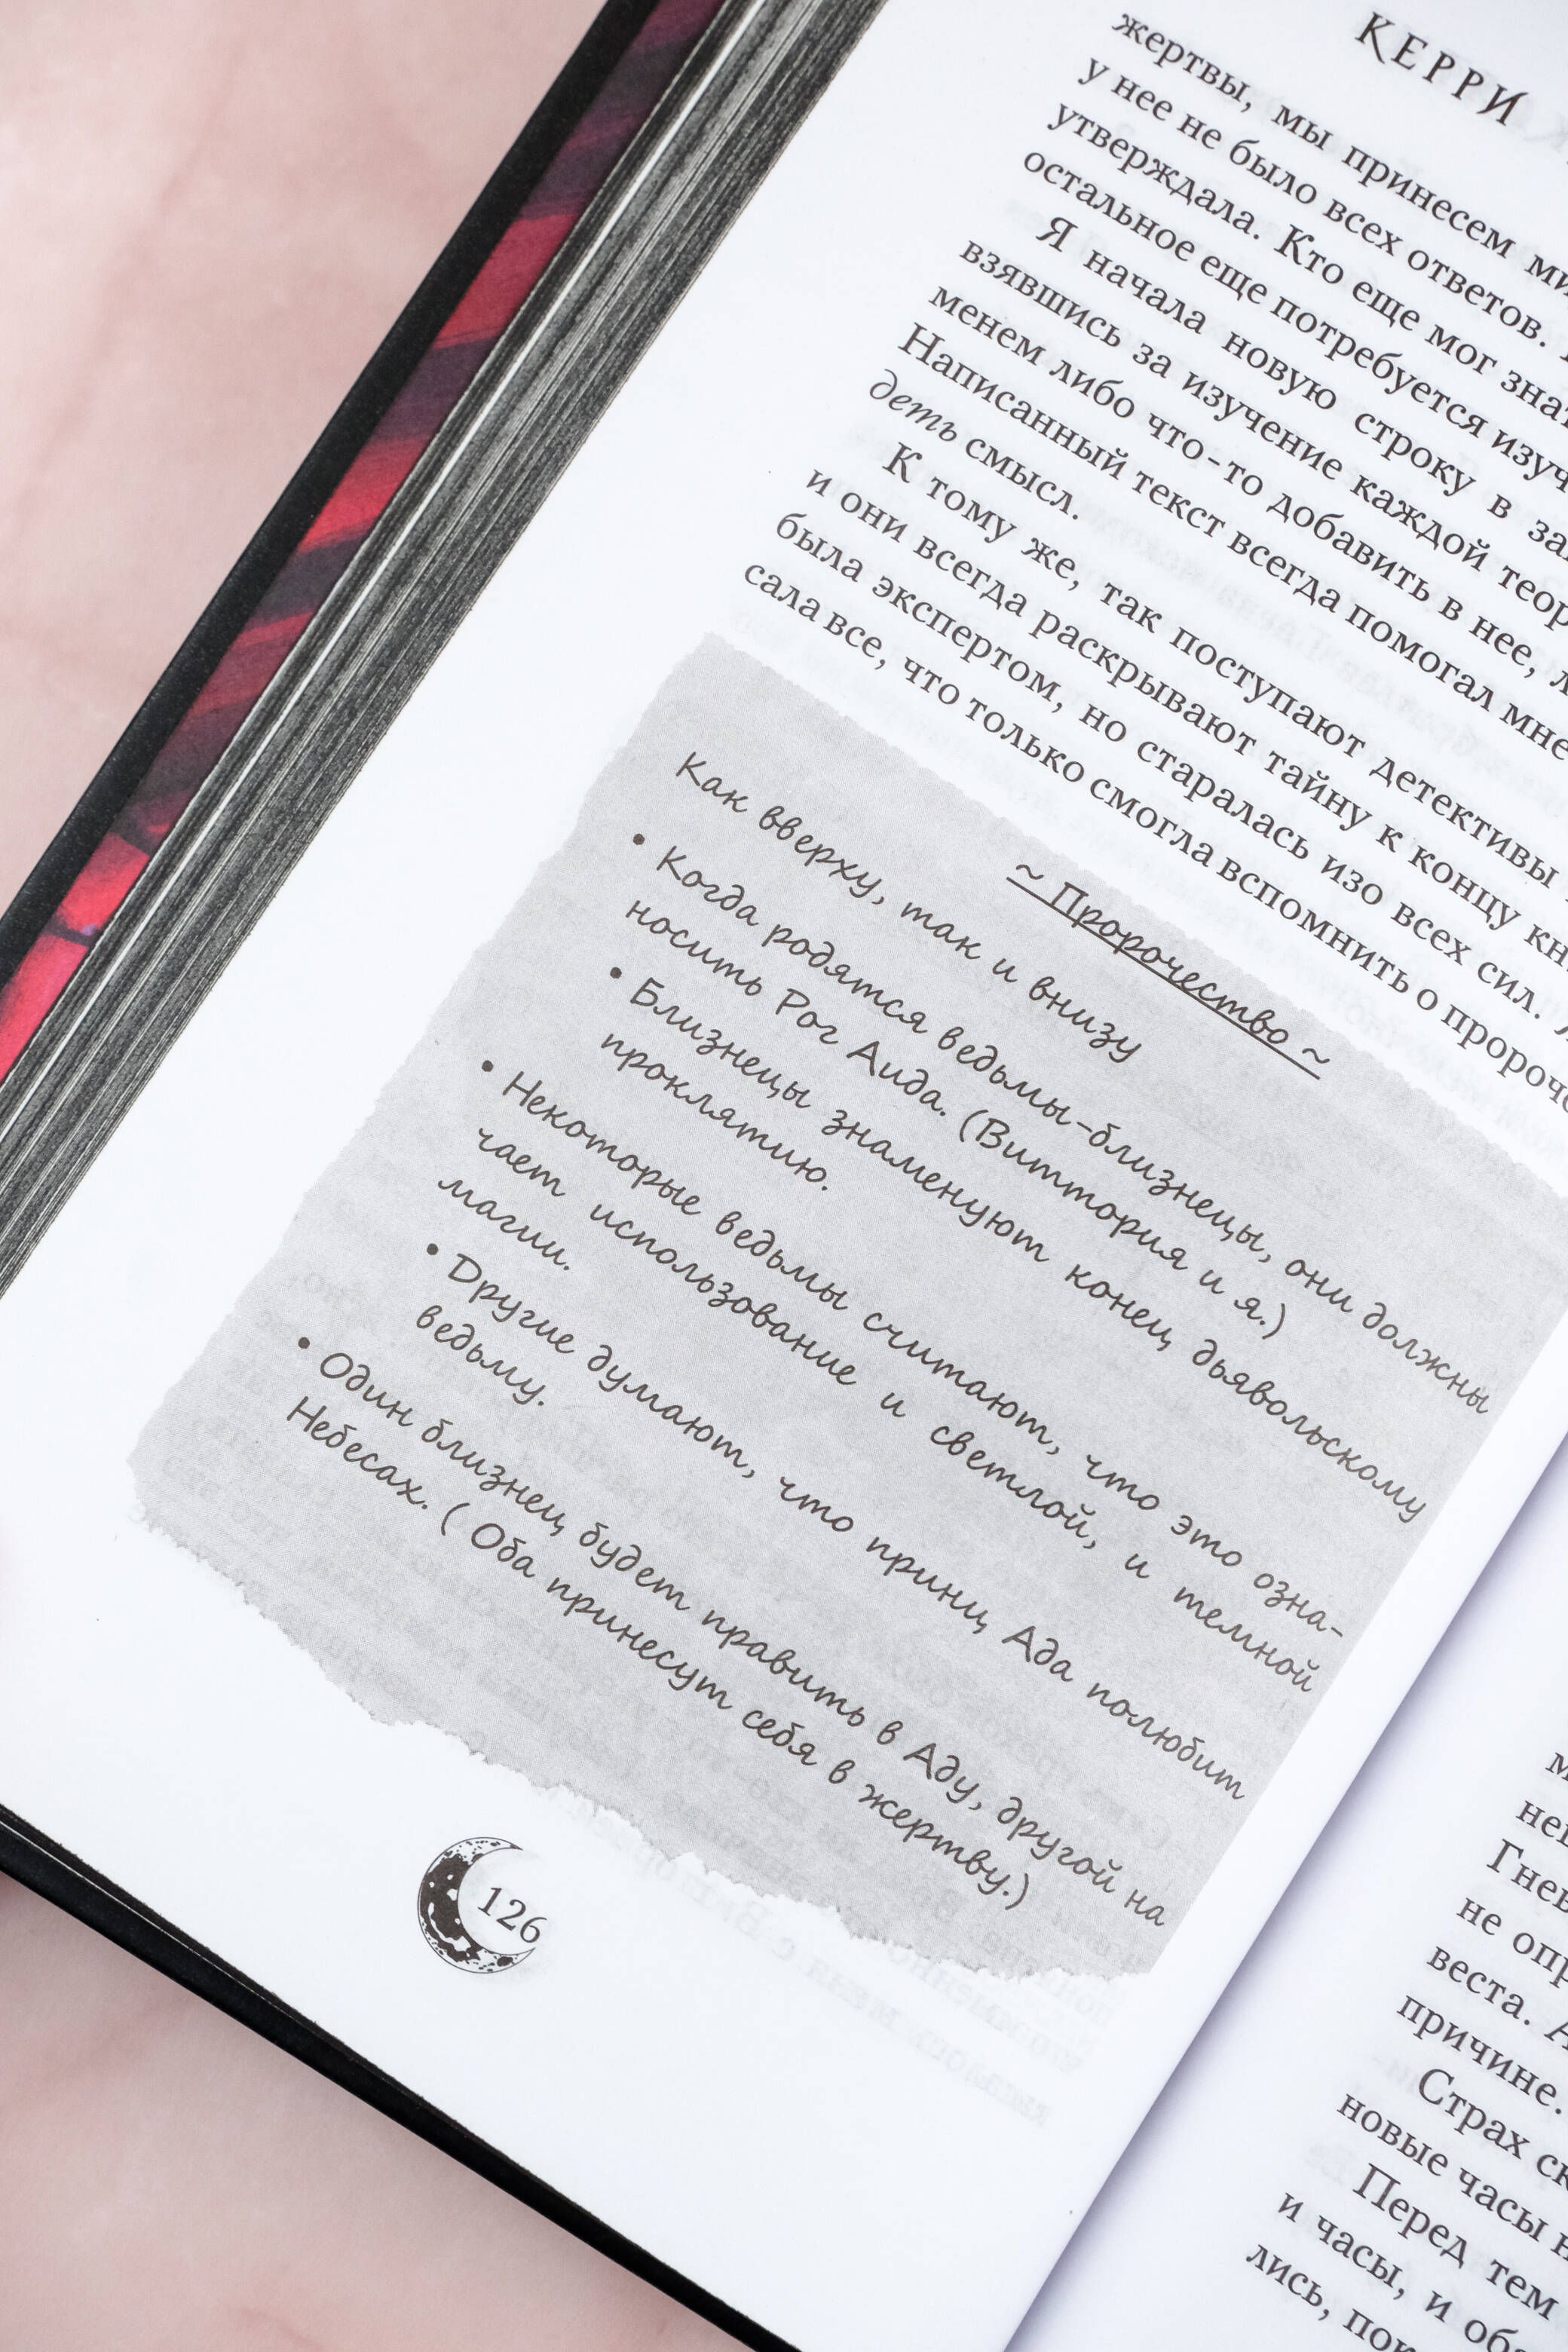 КЕРРИ
жертвы, мы принесем
у нее не было всех ответов.
утверждала. Кто еще мог
остальное еще потребуется
Я начала новую строку в
взявшись за изучение каждой
менем либо что-то добавить в нее,
Написанный текст всегда помогал мне
деть смысл.
К тому же, так поступают детективы
и они всегда раскрывают тайну к концу
была экспертом, но старалась изо всех сил.
сала все, что только смогла вспомнить о
~ Пророчество ~
Как вверху, так и внизу
• Когда родятся ведьмы-близнецы, они должны
носить Рог Аида. (Виттория и я.)
• Близнецы знаменуют конец дьявольскому
проклятию.
• Некоторые ведьмы считают, что это озна-
чает использование и светлой, и темной
магии.
• Другие думают, что принц Ада полюбит
ведьму.
• Один близнец будет править в Аду, другой на
Небесах. ( Оба принесут себя в жертву.)
126
не
веста.
причине.
Страх
новые часы
Перед тем
и часы, и
лись,